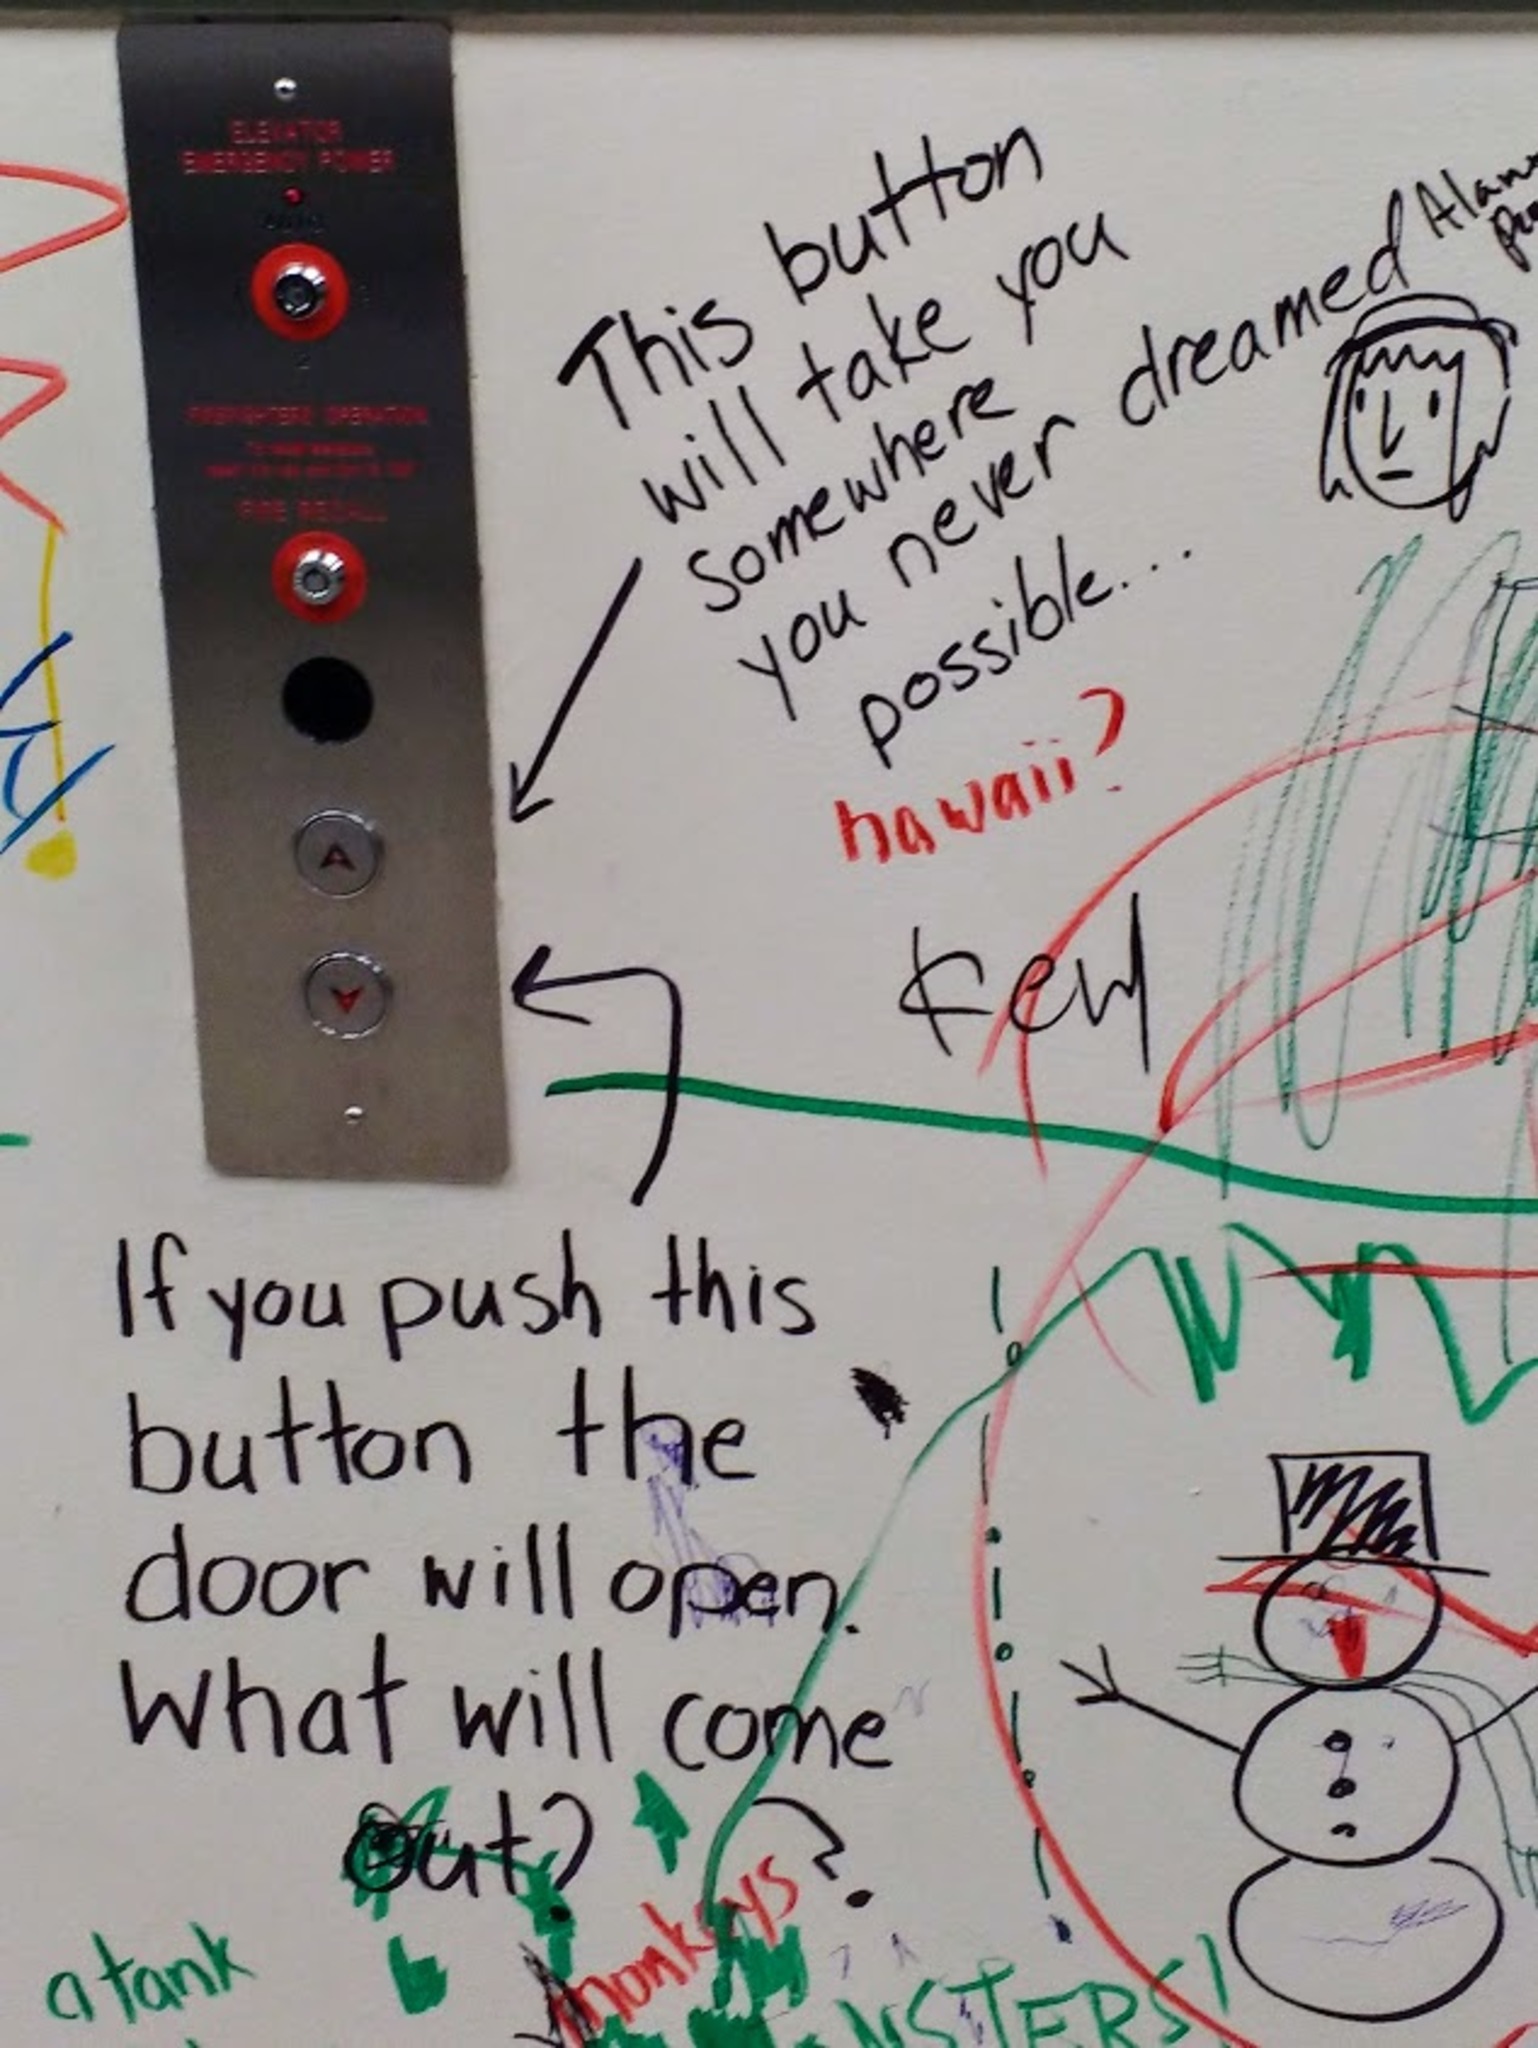 ELEVATOR
EMERGENCY POWER
2
FIREFIGHTERS OPERATION
FIRE RECALL
This button
will take you
somewhere
you never dreamed
possible...
hawaii?
If you push this
button the
door will open.
What will come
out?
?
a tank
monkeys